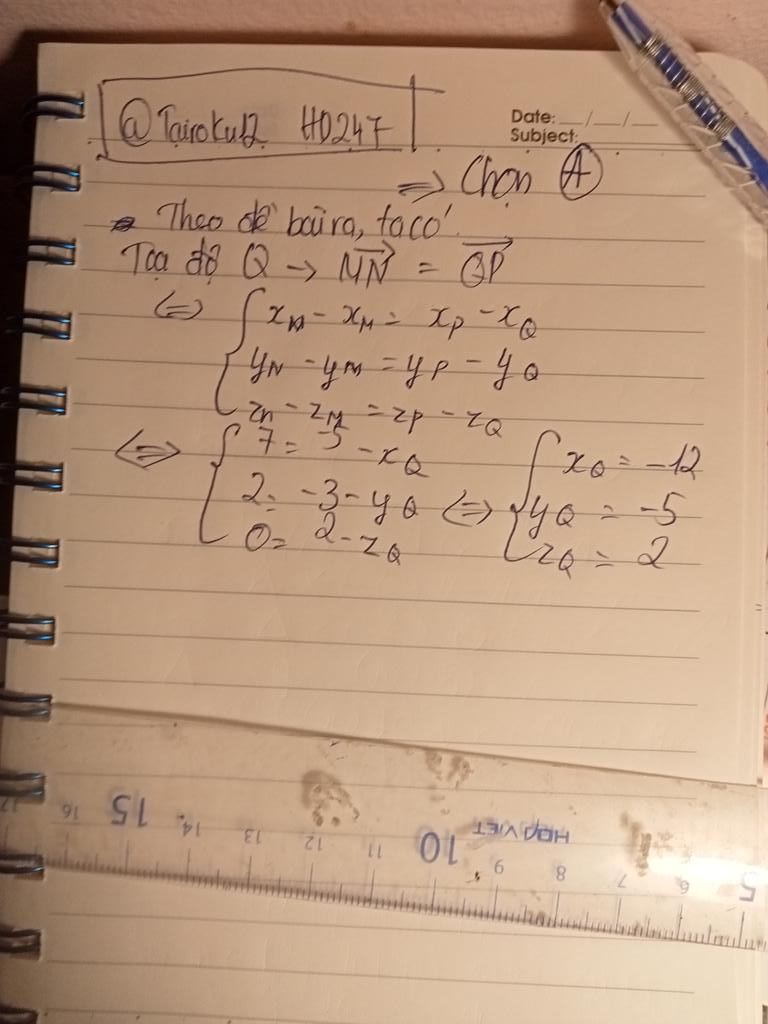 @Tairoku12 HD247
Date: __/__/__
Subject:
=> Chọn A
Theo đề bài ra, ta có
Tọa độ Q → MN = QP
<=> { xN - xM = xP - xQ
yN - yM = yP - yQ
zN - zM = zP - zQ
<=> { 7 = -5 - xQ
2 = -3 - yQ
0 = 2 - zQ
<=> { xQ = -12
yQ = -5
zQ = 2
17 16 15 14 13 12 11 10 9 8 7 6 5